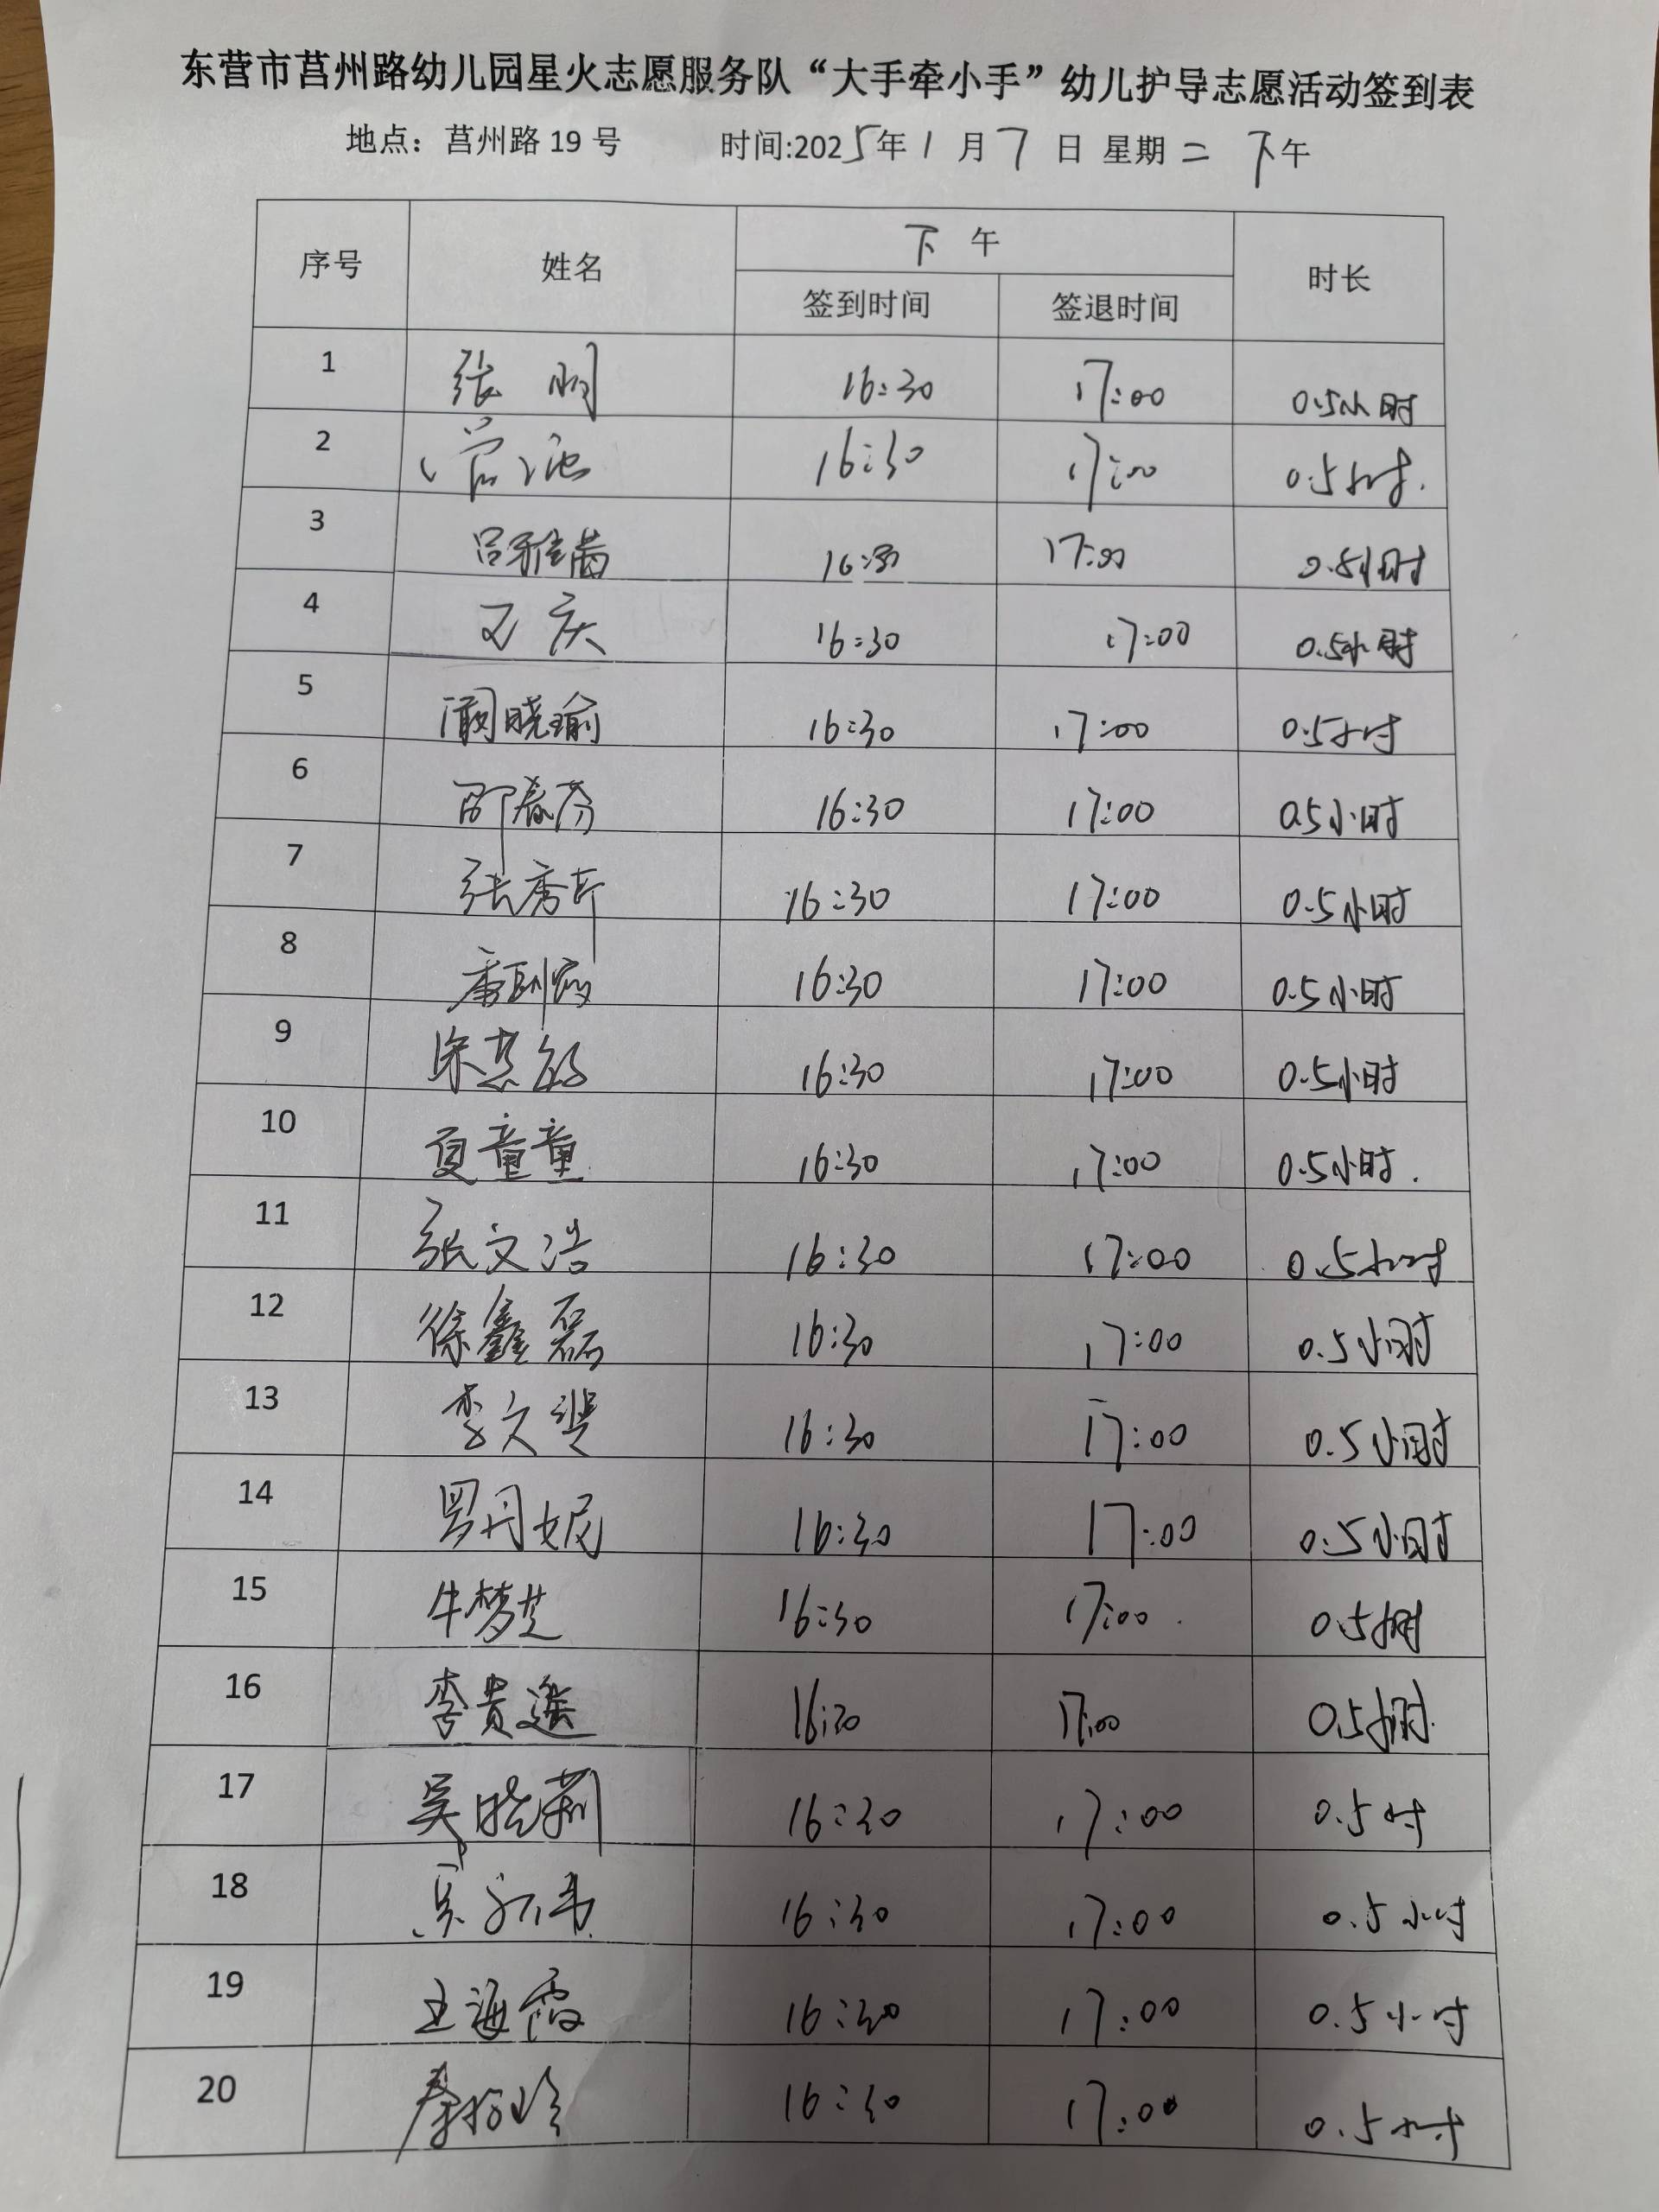 东营市莒州路幼儿园星火志愿服务队“大手牵小手”幼儿护导志愿活动签到表
地点：莒州路 19 号 时间:2025年1月7日 星期二 下午
序号 姓名 下午 时长
签到时间 签退时间
1 张 16:30 17:00 0.5小时
2 16:30 17:00 0.5小时.
3 吕雅茜 16:30 17:00 0.5小时
4 王庆 16:30 17:00 0.5小时
5 阚晓瑜 16:30 17:00 0.5小时
6 邵春芬 16:30 17:00 0.5小时
7 张秀芹 16:30 17:00 0.5小时
8 16:30 17:00 0.5小时
9 宋慧敏 16:30 17:00 0.5小时
10 夏童童 16:30 17:00 0.5小时.
11 张文浩 16:30 17:00 0.5小时
12 徐鑫磊 16:30 17:00 0.5小时
13 李文 16:30 17:00 0.5小时
14 罗丹妮 16:30 17:00 0.5小时
15 牛梦芝 16:30 17:00 0.5小时
16 李贵 16:30 17:00 0.5小时.
17 吴晓莉 16:30 17:00 0.5时
18 吴 16:30 17:00 0.5小时
19 王海霞 16:30 17:00 0.5小时
20 秦 16:30 17:00 0.5小时